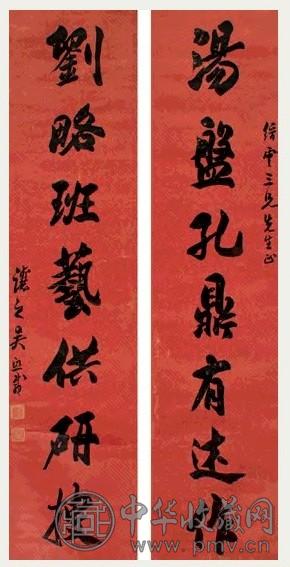 湯盤孔鼎有述作
雲三兄先生正
劉略班藝供研搜
讓之吳熙載
中华收藏网
www.pmv.cn